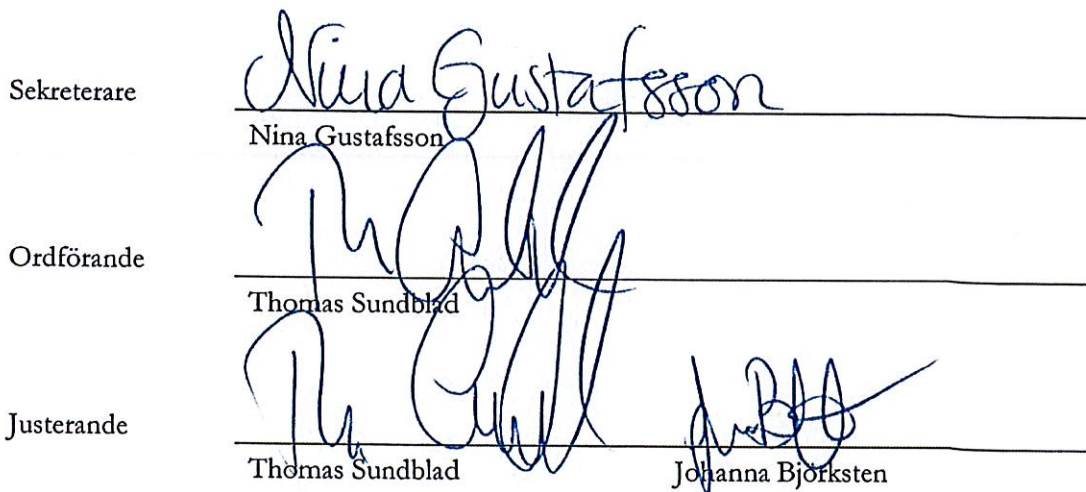 Sekreterare Nina Gustafsson
Nina Gustafsson
Ordförande
Thomas Sundblad
Justerande
Thomas Sundblad Johanna Björksten